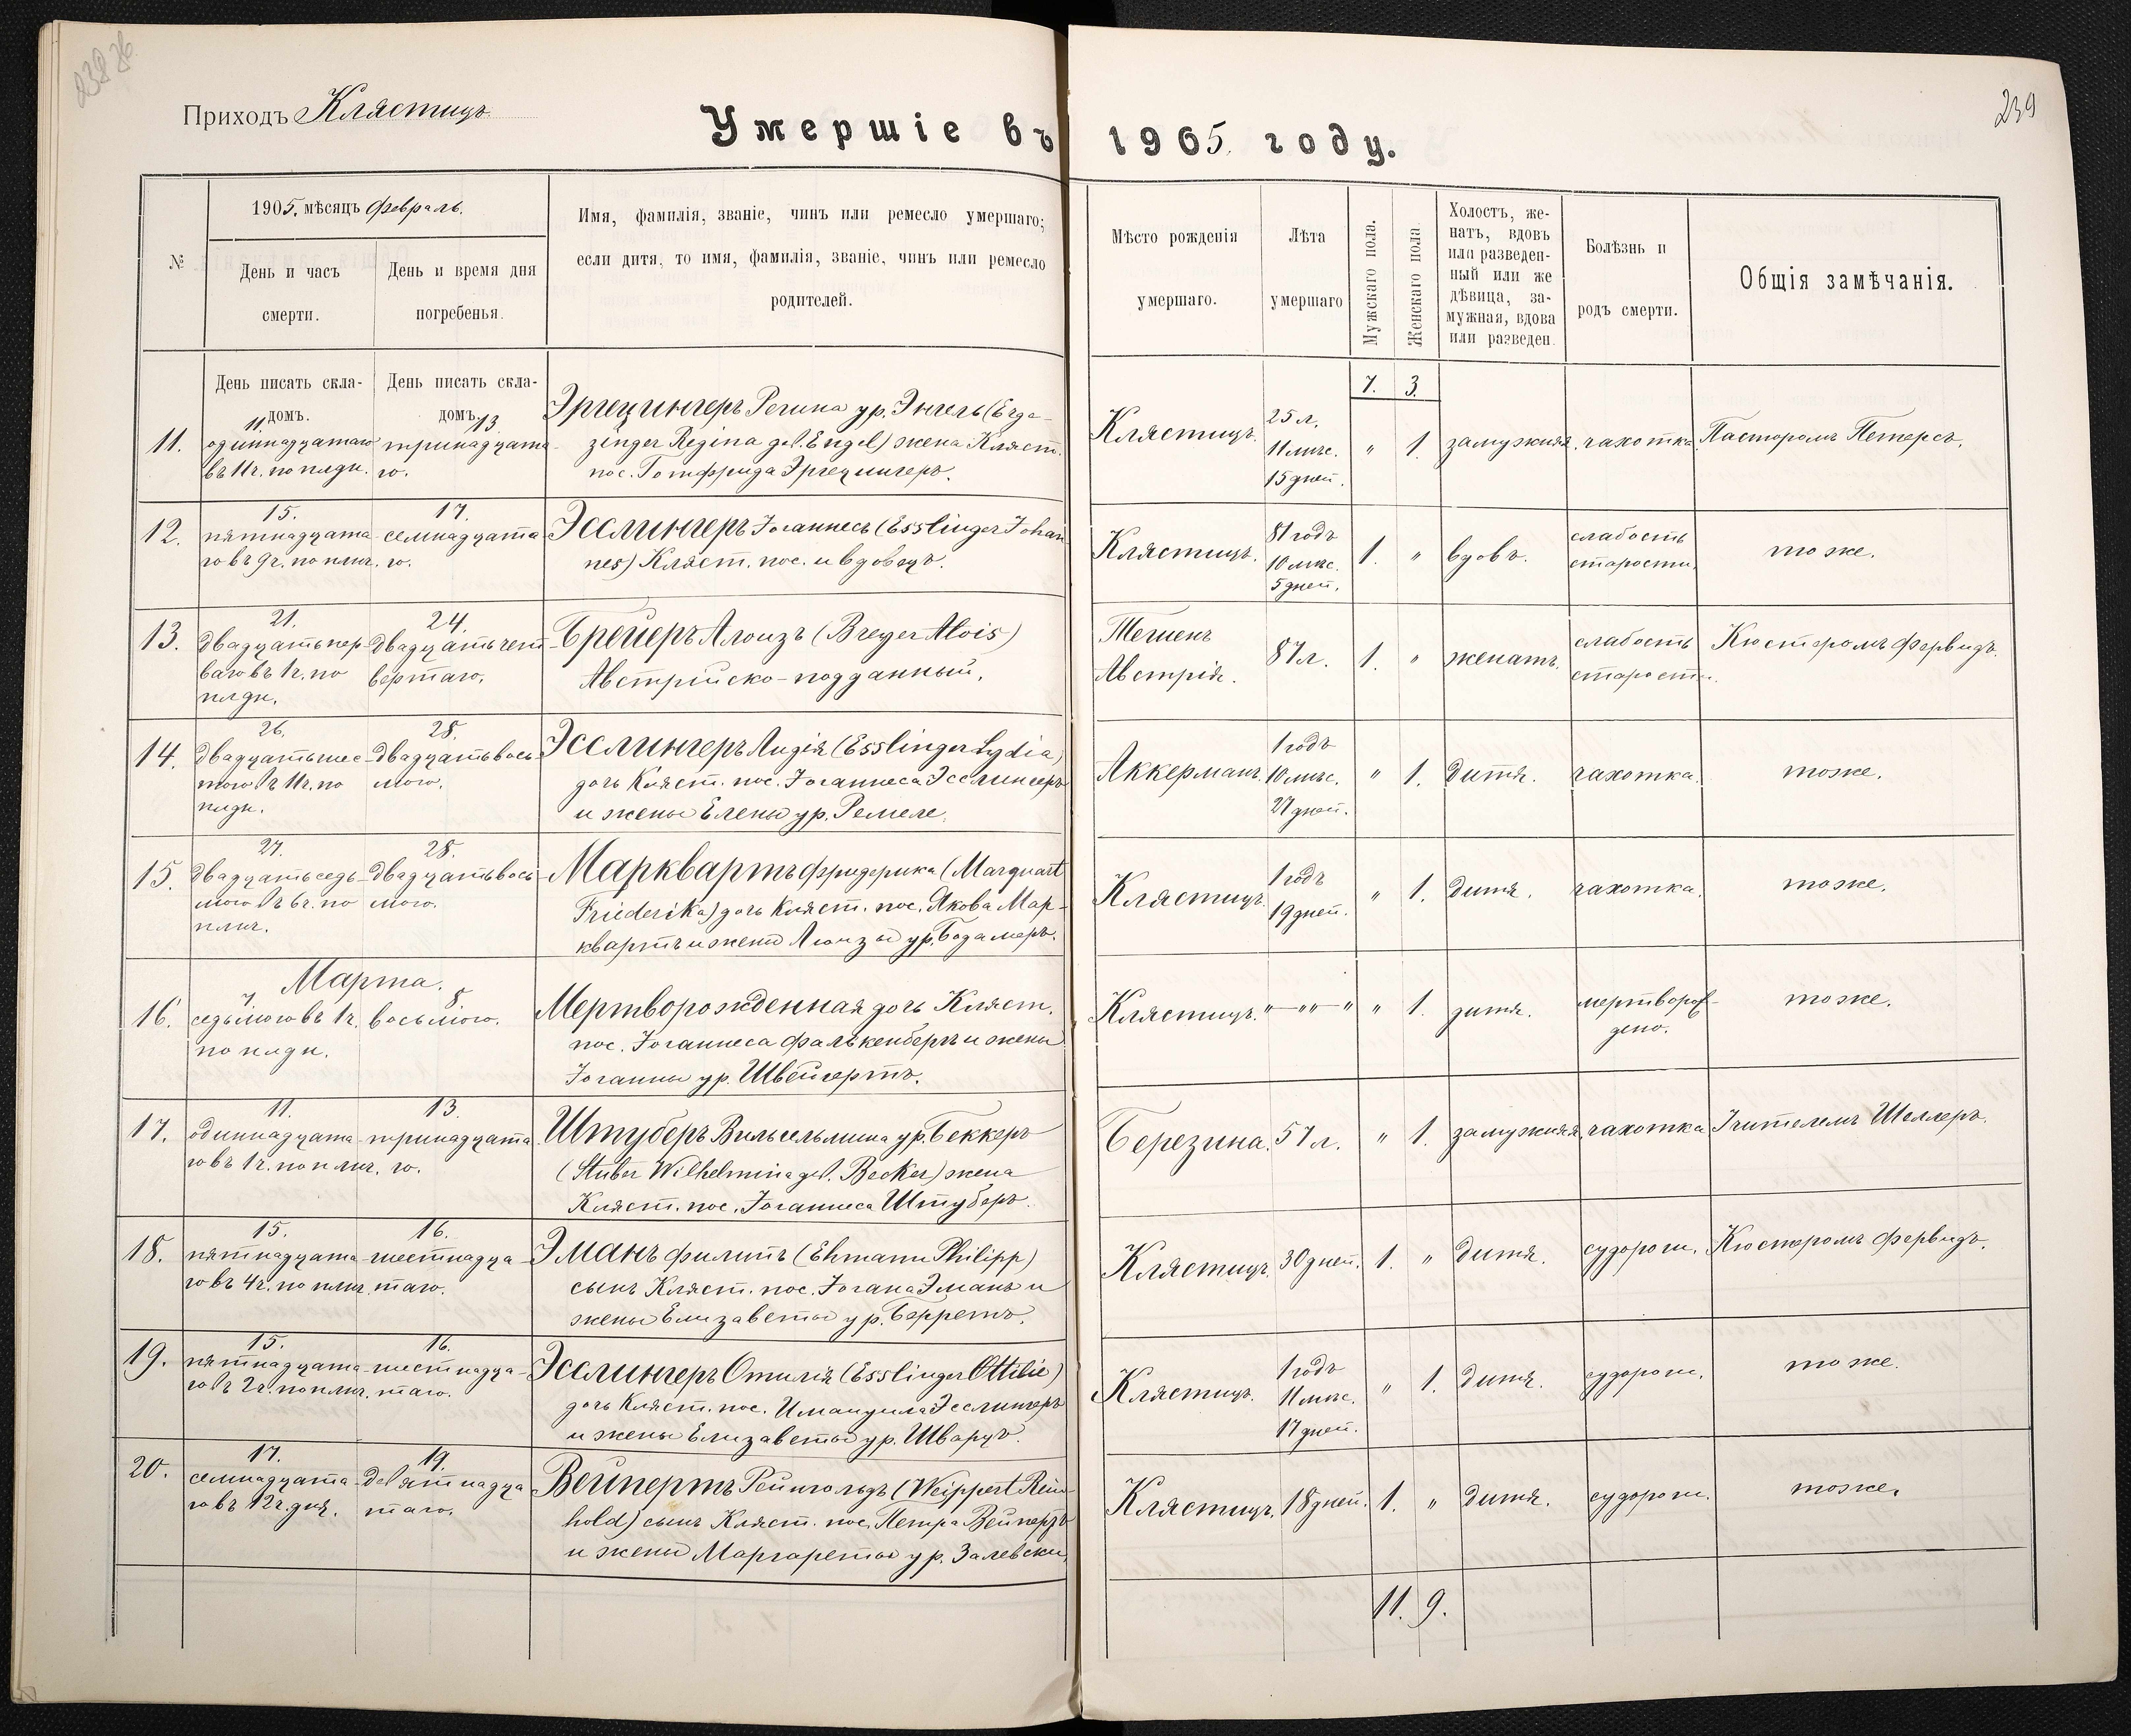 Приходъ Клястицъ
239
Умершіе въ 1905 году.
№
1905. мѣсяцъ февраль.
День и часъ
смерти.
День и время дня
погребенья.
Имя, фамилія, званіе, чинъ или ремесло умершаго;
если дитя, то имя, фамилія, званіе, чинъ или ремесло
родителей.
Мѣсто рожденія
умершаго.
Лѣта
умершаго
Мужскаго пола.
Женскаго пола
Холостъ, же-
натъ, вдовъ
или разведен-
ный или же
дѣвица, за-
мужная, вдова
или разведен.
Болѣзнь и
родъ смерти.
Общія замѣчанія.
День писать скла-
домъ.
День писать скла-
домъ.
7. 3.
11.
11.
одиннадцатаго
въ 11 ч. по плдн.
13.
тринадцата-
го.
Эргецингеръ Регина ур. Энгель (Erge-
zinger Regina geb. Engel) жена Кляст.
пос. Готфрида Эргецингеръ.
Клястицъ.
25 л.
11 мѣс.
15 дней.
" 1.
замужняя.
чахотка.
Пасторомъ Петерсъ.
12.
15.
пятнадцата-
го въ 9 ч. по плнч.
17.
семнадцата-
го.
Эсслингеръ Іоганнесъ (Esslinger Johan
nes) Кляст. пос. и вдовецъ.
Клястицъ.
81 годъ
10 мѣс.
5 дней.
1. "
вдовъ.
слабость
старости.
тоже.
13.
21.
двадцать пер-
ваго въ 1 ч. по
плдн.
24.
двадцать чет-
вертаго.
Брейеръ Алоизъ (Breyer Alois)
Австрійско-подданный.
Тешенъ
Австрія.
87 л.
1. "
женатъ.
слабость
старости.
Кюстеромъ Фервидъ.
14.
26.
двадцать шес-
того въ 11 ч. по
плдн.
28.
двадцать вось-
мого.
Эсслингеръ Лидія (Esslinger Lydia)
дочь Кляст. пос. Іоганнеса Эсслингеръ
и жены Елены ур. Ремеле.
Аккерманъ.
1 годъ
10 мѣс.
27 дней.
" 1.
дитя.
чахотка.
тоже.
15.
27.
двадцать седь-
мого въ 6 ч. по
плнч.
28.
двадцать вось-
мого.
Марквартъ Фридерика (Marquart
Friederika) дочь Кляст. пос. Якова Мар-
квартъ и жены Луизы ур. Бодамеръ.
Клястицъ.
1 годъ
19 дней.
" 1.
дитя.
чахотка.
тоже.
Марта.
16.
7.
седьмого въ 1 ч.
по плдн.
8.
восьмого.
Мертворожденная дочь Кляст.
пос. Іоганнеса Фалькенбергъ и жены
Іоганны ур. Швейгертъ.
Клястицъ.
" — "" — "
" 1.
дитя.
мертворож-
дено.
тоже.
17.
11.
одиннадцата-
го въ 1 ч. по плнч.
13.
тринадцата
го.
Штуберъ Вильгельмина ур. Беккеръ
(Stuber Wilhelmina geb. Becker) жена
Кляст. пос. Іоганнеса Штуберъ.
Березина.
57 л.
" 1.
замужняя.
чахотка
Учителемъ Шеллеръ.
18.
15.
пятнадцата-
го въ 4 ч. по плнч.
16.
шестнадца-
таго.
Эманъ Филипъ (Ehmann Philipp)
сынъ Кляст. пос. Іогана Эманъ и
жены Елизаветы ур. Берретъ.
Клястицъ.
30 дней.
1. "
дитя.
судороги.
Кюстеромъ Фервидъ.
19.
15.
пятнадцата-
го въ 2 ч. по плнч.
16.
шестнадца-
таго.
Эсслингеръ Отилія (Esslinger Ottilie)
дочь Кляст. пос. Имануила Эсслингеръ
и жены Елизаветы ур. Шварцъ.
Клястицъ.
1 годъ
11 мѣс.
17 дней.
" 1.
дитя.
судороги.
тоже.
20.
17.
семнадцата-
го въ 12 ч. дня.
19.
девятнадца
таго.
Вейпертъ Рейнгольдъ (Weippert Rein-
hold) сынъ Кляст. пос. Петра Вейпертъ
и жены Маргареты ур. Залевски.
Клястицъ.
18 дней.
1. "
дитя.
судороги.
тоже.
11. 9.